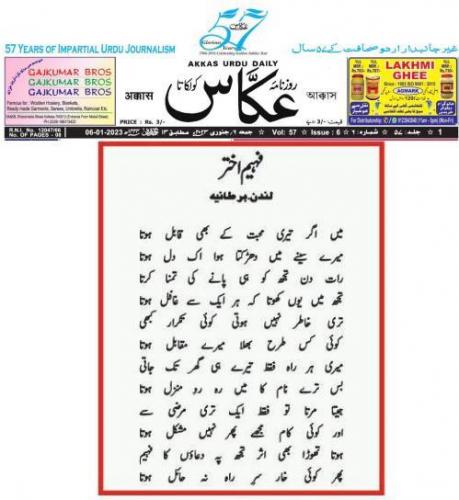 57 YEARS OF IMPARTIAL URDU JOURNALISM
57
غیر جانبدار اردو صحافت کے ۵۷ سال
AKKAS URDU DAILY
GAJKUMAR BROS
GAJKUMAR BROS
GAJKUMAR BROS
अक्कास
روزنامہ عکاس کولکاتا
আক্কাস
LAKHMI GHEE
AGMARK
PRICE : Rs. 3/-
قیمت: ۳/- روپے
R.N.I. No. 12047/66
No. OF PAGES - 08
06-01-2023
Vol: 57
Issue : 6
شمارہ: ۶
جلد: ۵۷
1
فہیم اختر
لندن۔برطانیہ
میں اگر تیری محبت کے بھی قابل ہوتا
میرے سینے میں دھڑکتا ہوا اک دل ہوتا
رات دن تجھ کو ہی پانے کی تمنا کرتا
تجھ میں یوں کھوتا کہ ہر ایک سے غافل ہوتا
تری خاطر نہیں ہوتی کوئی تکرار کبھی
کوئی کس طرح بھلا میرے مقابل ہوتا
میری ہر راہ فقط تیرے ہی گھر تک جاتی
بس ترے نام کا میں رہ رو منزل ہوتا
جیتا مرتا تو فقط ایک تری مرضی سے
اور کوئی کام مجھے پھر نہیں مشکل ہوتا
ہوتا تھوڑا بھی اثر تجھ پہ دعاؤں کا فہیم
پھر کوئی خار سر راہ نہ حائل ہوتا